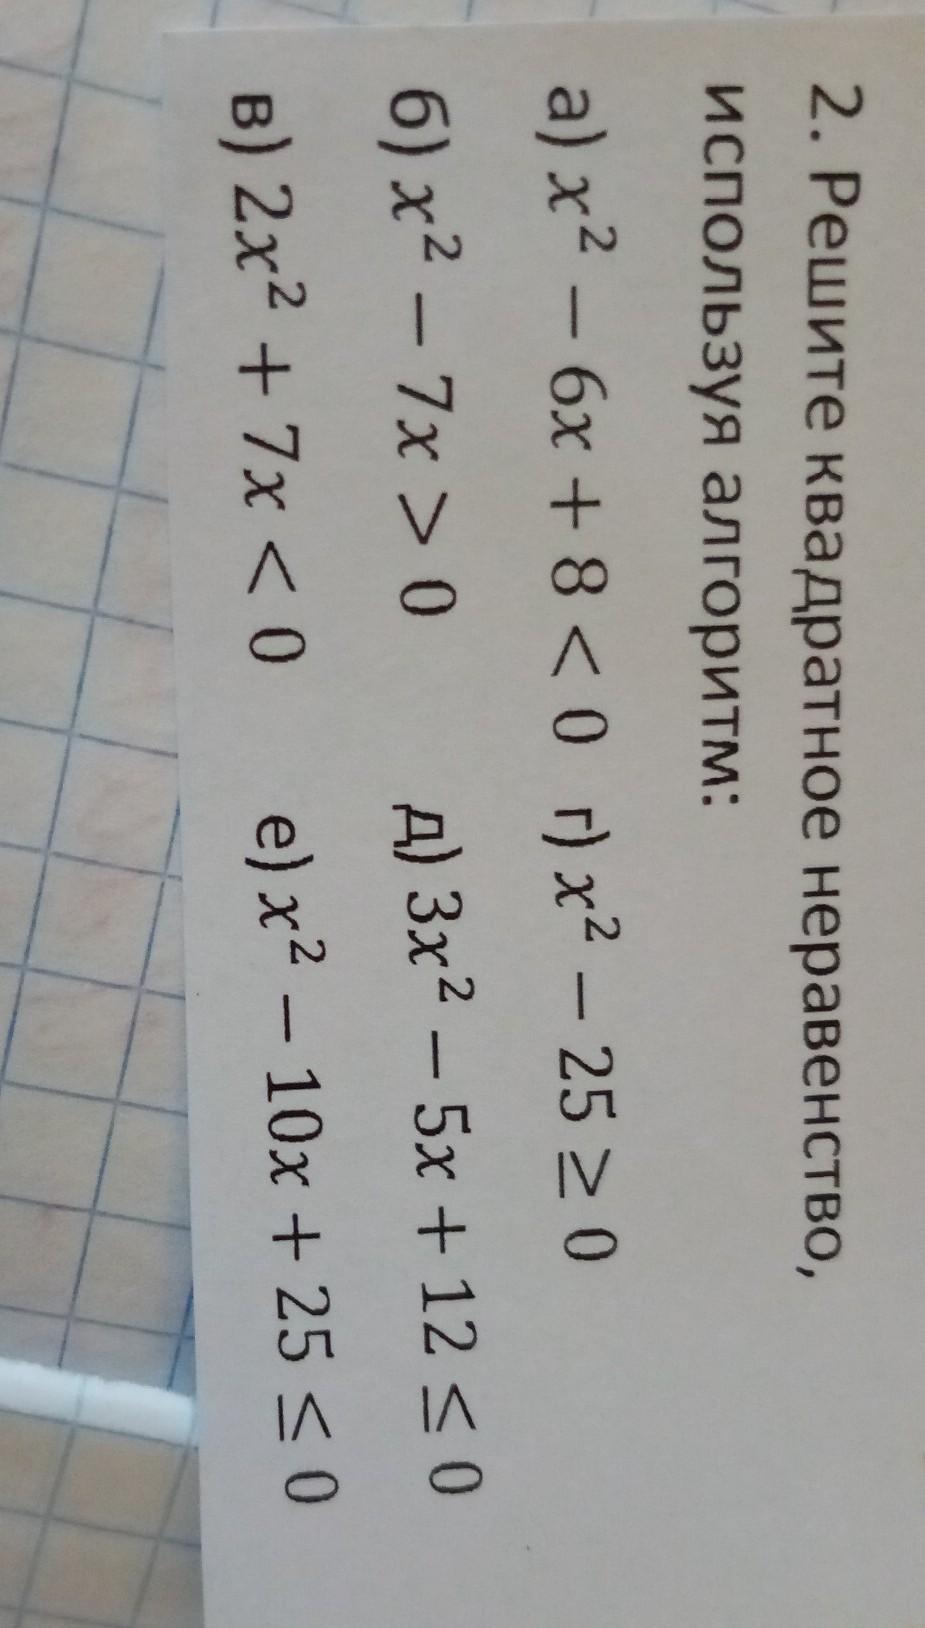 2. Решите квадратное неравенство,
используя алгоритм:
а) x² − 6x + 8 < 0 г) x² − 25 ≥ 0
б) x² − 7x > 0 д) 3x² − 5x + 12 ≤ 0
в) 2x² + 7x < 0 е) x² − 10x + 25 ≤ 0